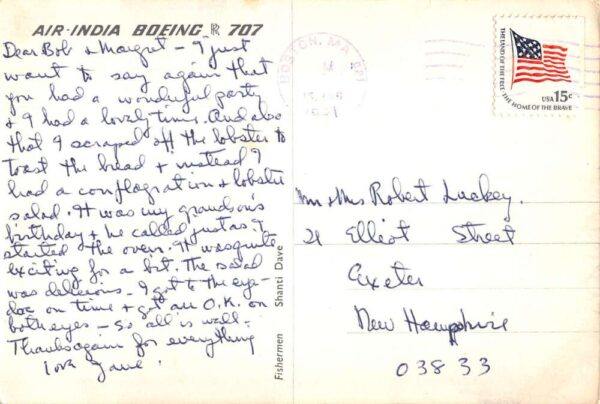 AIR-INDIA BOEING 707
Dear Bob & Margret - I just
want to say again that
you had a wonderful party
& I had a lovely time. And also
that I scraped off the lobster to
toast the bread & instead I
had a conflagration & lobster
salad. It was my grandson's
birthday & he called just as I
started the oven. It was quite
exciting for a bit. The salad
was delicious. I got to the eye-
doc on time & got an O.K. on
both eyes - so all is well.
Thanks again for everything
love Jane.
Fishermen Shanti Dave
BOSTON, MA
1981
THE LAND OF THE FREE
THE HOME OF THE BRAVE
USA 15c
Mr & Mrs Robert Luckey.
21 Elliot Street
Exeter
New Hampshire
03833